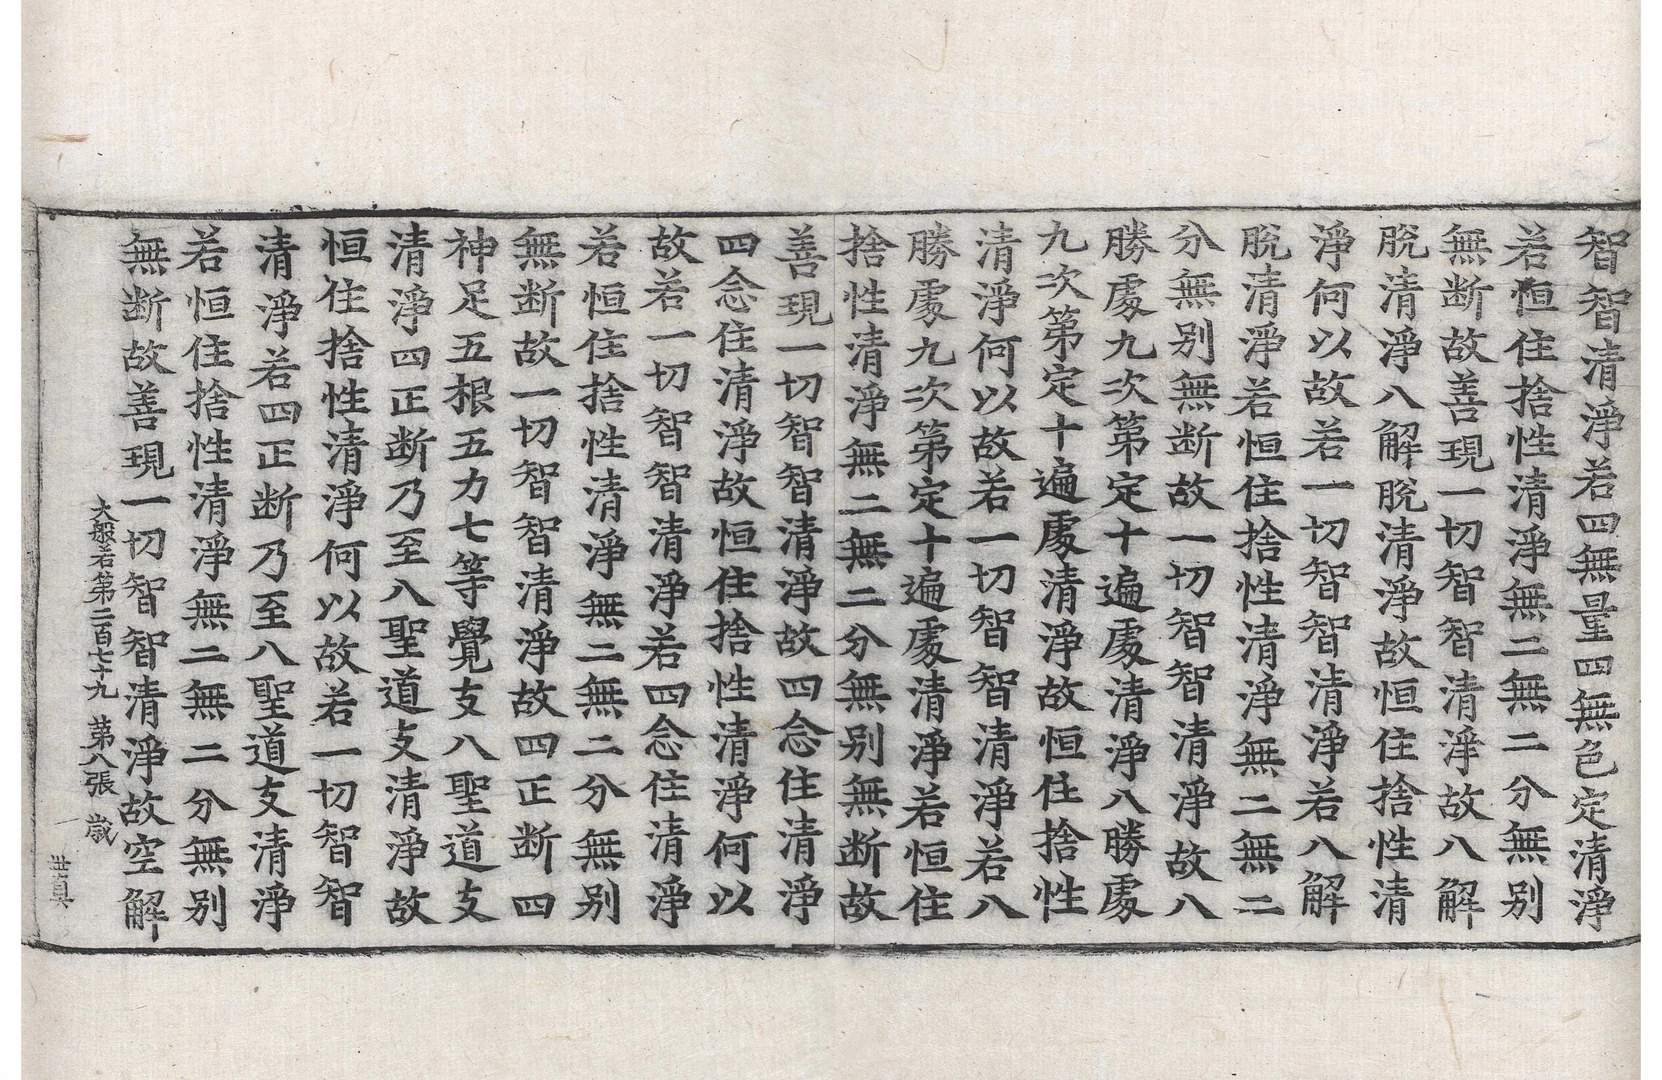 智智清淨若四無量四無色定清淨
若恒住捨性清淨無二無二分無別
無断故善現一切智智清淨故八解
脫清淨八解脫清淨故恒住捨性清
淨何以故若一切智智清淨若八解
脫清淨若恒住捨性清淨無二無二
分無别無断故一切智智清淨故八
勝處九次第定十遍處清淨八勝處
九次第定十遍處清淨故恒住捨性
清淨何以故若一切智智清淨若八
勝處九次第定十遍處清淨若恒住
捨性清淨無二無二分無别無断故
善現一切智智清淨故四念住清淨
四念住清淨故恒住捨性清淨何以
故若一切智智清淨若四念住清淨
若恒住捨性清淨無二無二分無别
無断故一切智智清淨故四正断四
神足五根五力七等覺支八聖道支
清淨四正断乃至八聖道支清淨故
恒住捨性清淨何以故若一切智智
清淨若四正断乃至八聖道支清淨
若恒住捨性清淨無二無二分無别
無断故善現一切智智清淨故空解
大般若第二百七十九 第八張 歲
世真